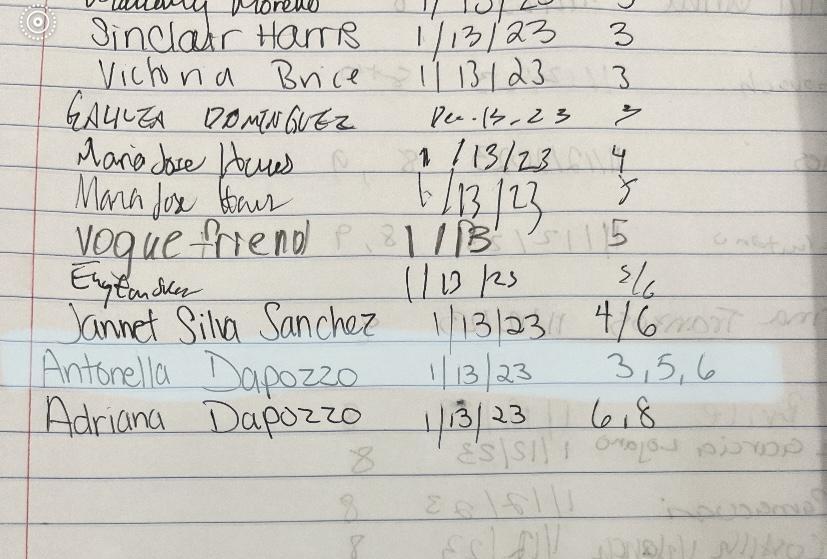 Moreno 1/13/23 3
Sinclair Harris 1/13/23 3
Victoria Brice 1/13/23 3
GALILEA DOMINGUEZ Dec. 13, 23 3
Maria Jose 1/13/23 4
Maria Jose 1/13/23
Vogue friend 1/13 5
1/13/23 5/6
Jannet Silva Sanchez 1/13/23 4/6
Antonella Dapozzo 1/13/23 3,5,6
Adriana Dapozzo 1/13/23 6,8